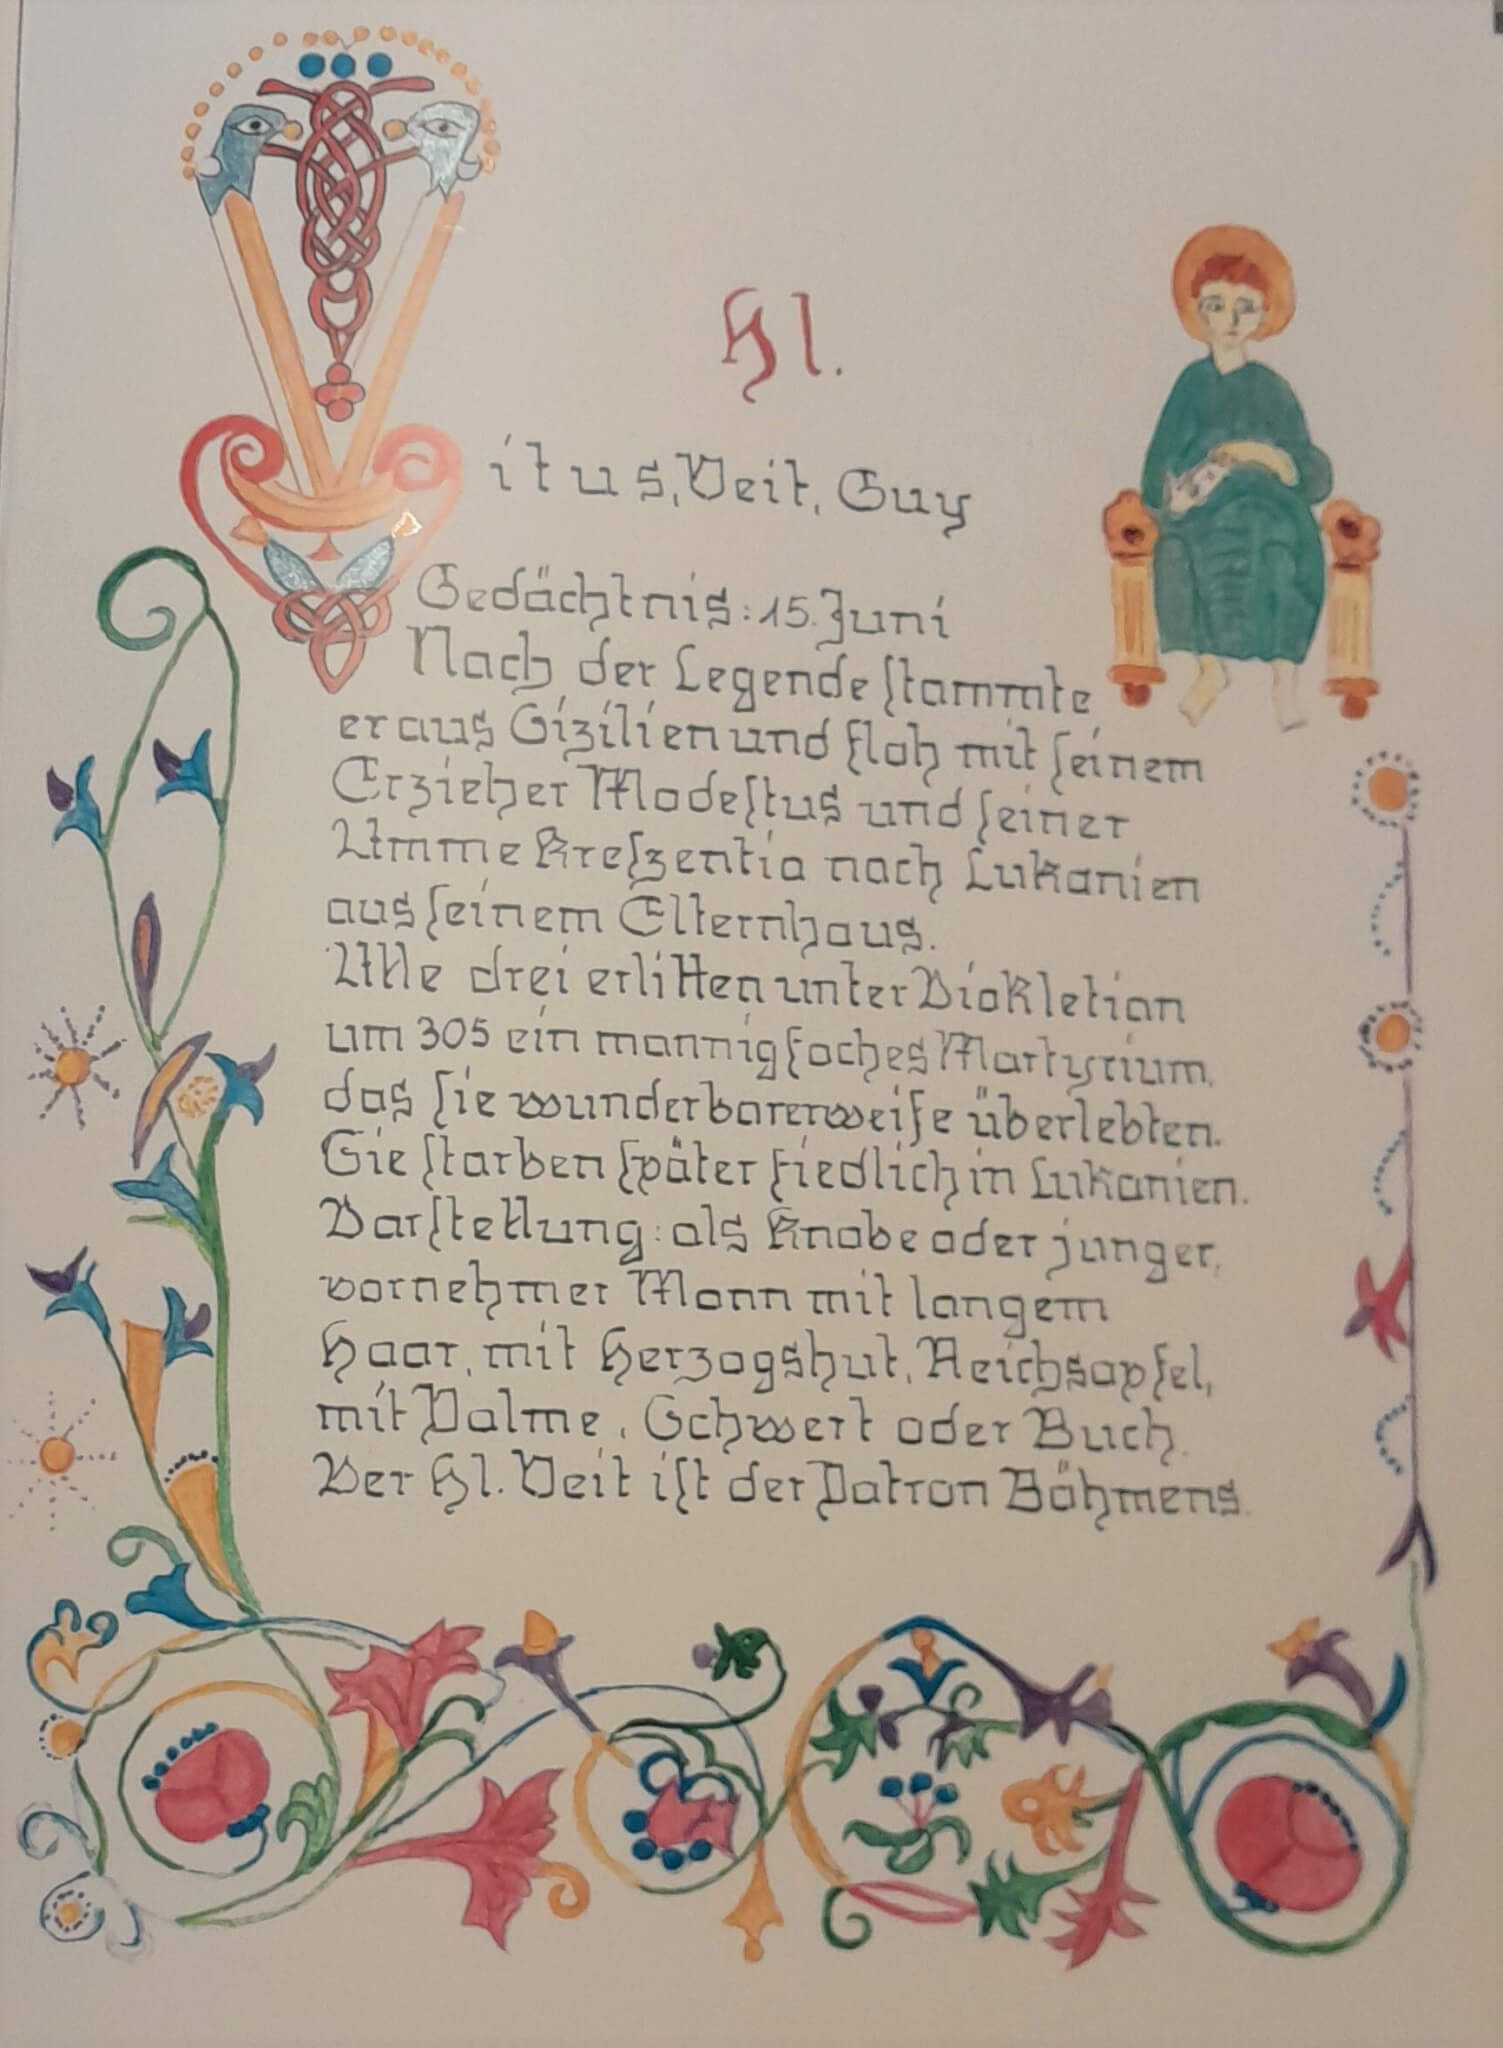 Hl.
Vitus, Veit, Guy
Gedächtnis: 15. Juni
Nach der Legende stammte
er aus Sizilien und floh mit seinem
Erzieher Modestus und seiner
Amme Kreszentia nach Lukanien
aus seinem Elternhaus.
Alle drei erlitten unter Diokletian
um 305 ein mannigfaches Martyrium,
das sie wunderbarerweise überlebten.
Sie starben später fiedlich in Lukanien.
Darstellung: als Knabe oder junger,
vornehmer Mann mit langem
Haar, mit Herzogshut, Reichsapfel,
mit Palme, Schwert oder Buch.
Der Hl. Veit ist der Patron Böhmens.